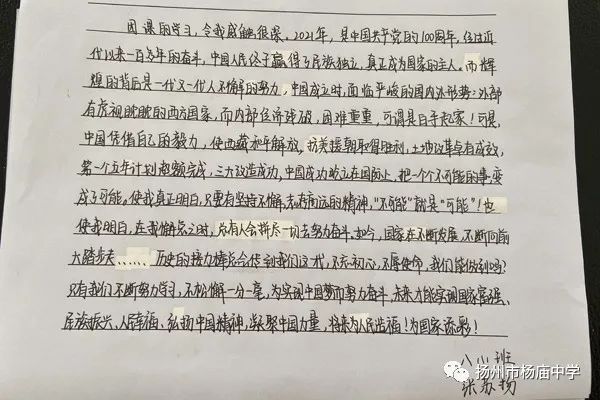 团课的学习，令我感触很深。2021年，是中国共产党的100周年，经过近
代以来一百多年的奋斗，中国人民终于赢得了民族独立，真正成为国家的主人。而辉
煌的背后是一代又一代人不懈的努力，中国成立时，面临严峻的国内外形势：外部
有虎视眈眈的西方国家，而内部经济残破，困难重重，可谓是白手起家！可是，
中国凭借自己的毅力，使西藏和平解放，抗美援朝取得胜利，土地改革卓有成效，
第一个五年计划超额完成，三大改造成功，中国成功屹立在国际上，把一个个不可能的事，变
成了可能。使我真正明白，只要有坚持不懈，志存高远的精神，“不可能”就是“可能”！也
使我明白，在我懈怠之时，总有人会拼尽一切去努力奋斗。如今，国家在不断发展，不断向前
大踏步走……，历史的接力棒总会传到我们这代，不忘初心，不辱使命，我们能做到吗？
只有我们不断努力学习，不松懈一分一毫，为实现中国梦而努力奋斗，未来才能实现国家富强、
民族振兴、人民幸福、弘扬中国精神，凝聚中国力量，将来为人民造福！为国家添彩！
八(1)班
张苏扬
扬州市杨庙中学